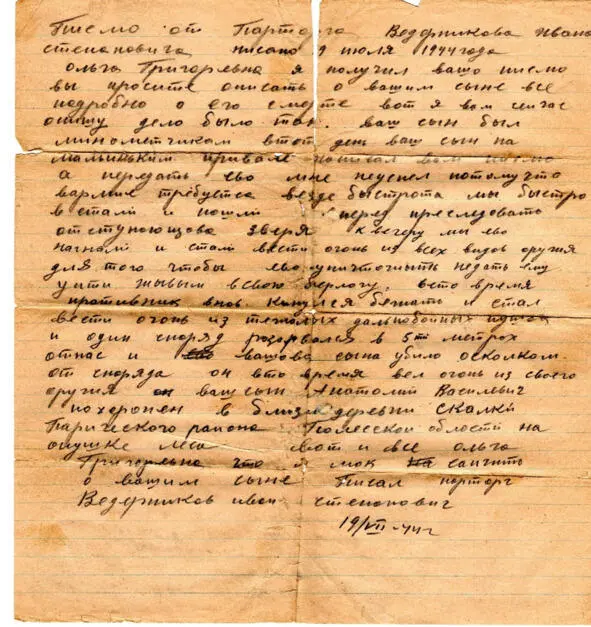 Писмо от Парторга Ведерникова Ивана
степановича писано 19 июля 1944 года
Ольга Григоревна я получил вашо писмо
вы просите описать о вашим сыне все
подробно о его смерте вот я вам сичас
опишу дело было так. ваш сын был
минометчиком втот день ваш сын на
малиньким привале написал вам писмо
а передать ево мне неуспел потомучто
вармие требуетса везде быстрота мы быстро
встали и пошли в перед преследовать
отступоющова зверя к вечеру мы ево
нагнали и стали вести огонь из всех видов оружия
для того чтобы ево уничтожить недать ему
уйти жывым в свою берлогу, вэто время
противник вновь кинулся бежать и стал
вести огонь из тежолых дальнобойных пушок
и один снорял розорвался в 5ти метрох
отнас и вашова сына убило осколком
от снорядa он вто время вел огонь из своего
оружия ваш сын Анатолий Василевич
похоронен в близи деревни Скалки
Паричского района Полесской области на
опушке леса вот и все ольга
Григорьевна что я мок сапчить
о вашим сыне Писал парторг
Ведерников иван степонович
19/VII-44 г